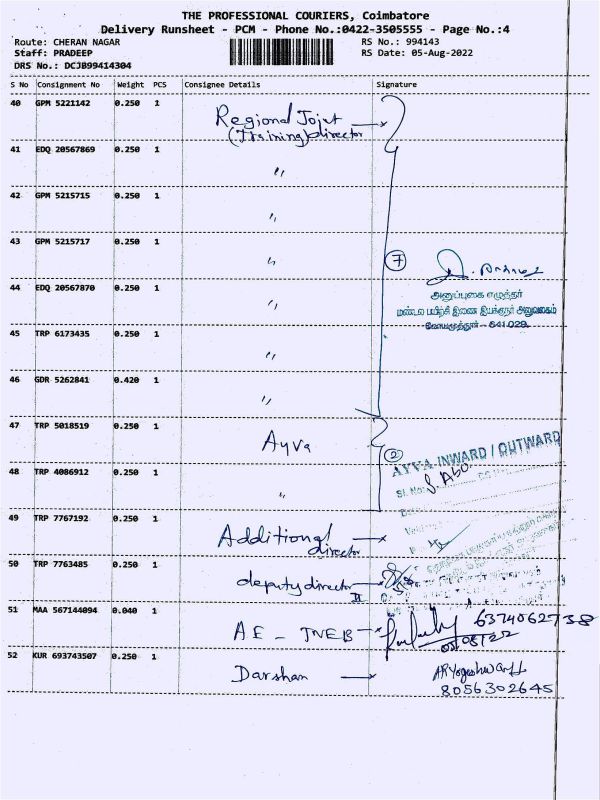 THE PROFESSIONAL COURIERS, Coimbatore
Delivery Runsheet - PCM - Phone No.:0422-3505555 - Page No.:4
Route: CHERAN NAGAR RS No.: 994143
Staff: PRADEEP RS Date: 05-Aug-2022
DRS No.: DCJB99414304
S No Consignment No Weight PCS Consignee Details Signature
40 GPM 5221142 0.250 1 Regional Joint
(Training) director
41 EDQ 20567869 0.250 1 "
42 GPM 5215715 0.250 1 "
43 GPM 5215717 0.250 1 " 7
44 EDQ 20567870 0.250 1 "
அனுப்புகை எழுத்தர்
மண்டல பயிற்சி இணை இயக்குநர் அலுவலகம்
கோயமுத்தூர் - 641 029.
45 TRP 6173435 0.250 1 "
46 GDR 5262841 0.420 1 "
47 TRP 5018519 0.250 1 Ayva 2
AYVA INWARD / OUTWARD
48 TRP 4086912 0.250 1 "
Sl. No:
49 TRP 7767192 0.250 1 Additional
director
50 TRP 7763485 0.250 1 deputy director
II
51 MAA 567144094 0.040 1 AE - TNEB 6374062738
05/08/22
52 KUR 693743507 0.250 1 Darshan
8056302645